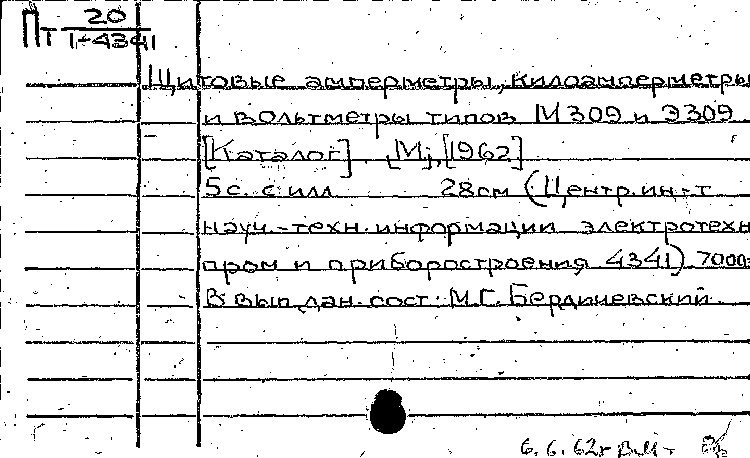 Пт 20
1-4341
Щитовые амперметры, килоамперметры
и вольтметры типов М309 и Э309
[Каталог]. [М., [1962]
5с. с илл 28см (Центр. ин-т
науч.-техн. информации электротехн
пром и приборостроения 4341). 7000э
В вып. дан. сост: М.Г. Бердичевский.
6.6.62г